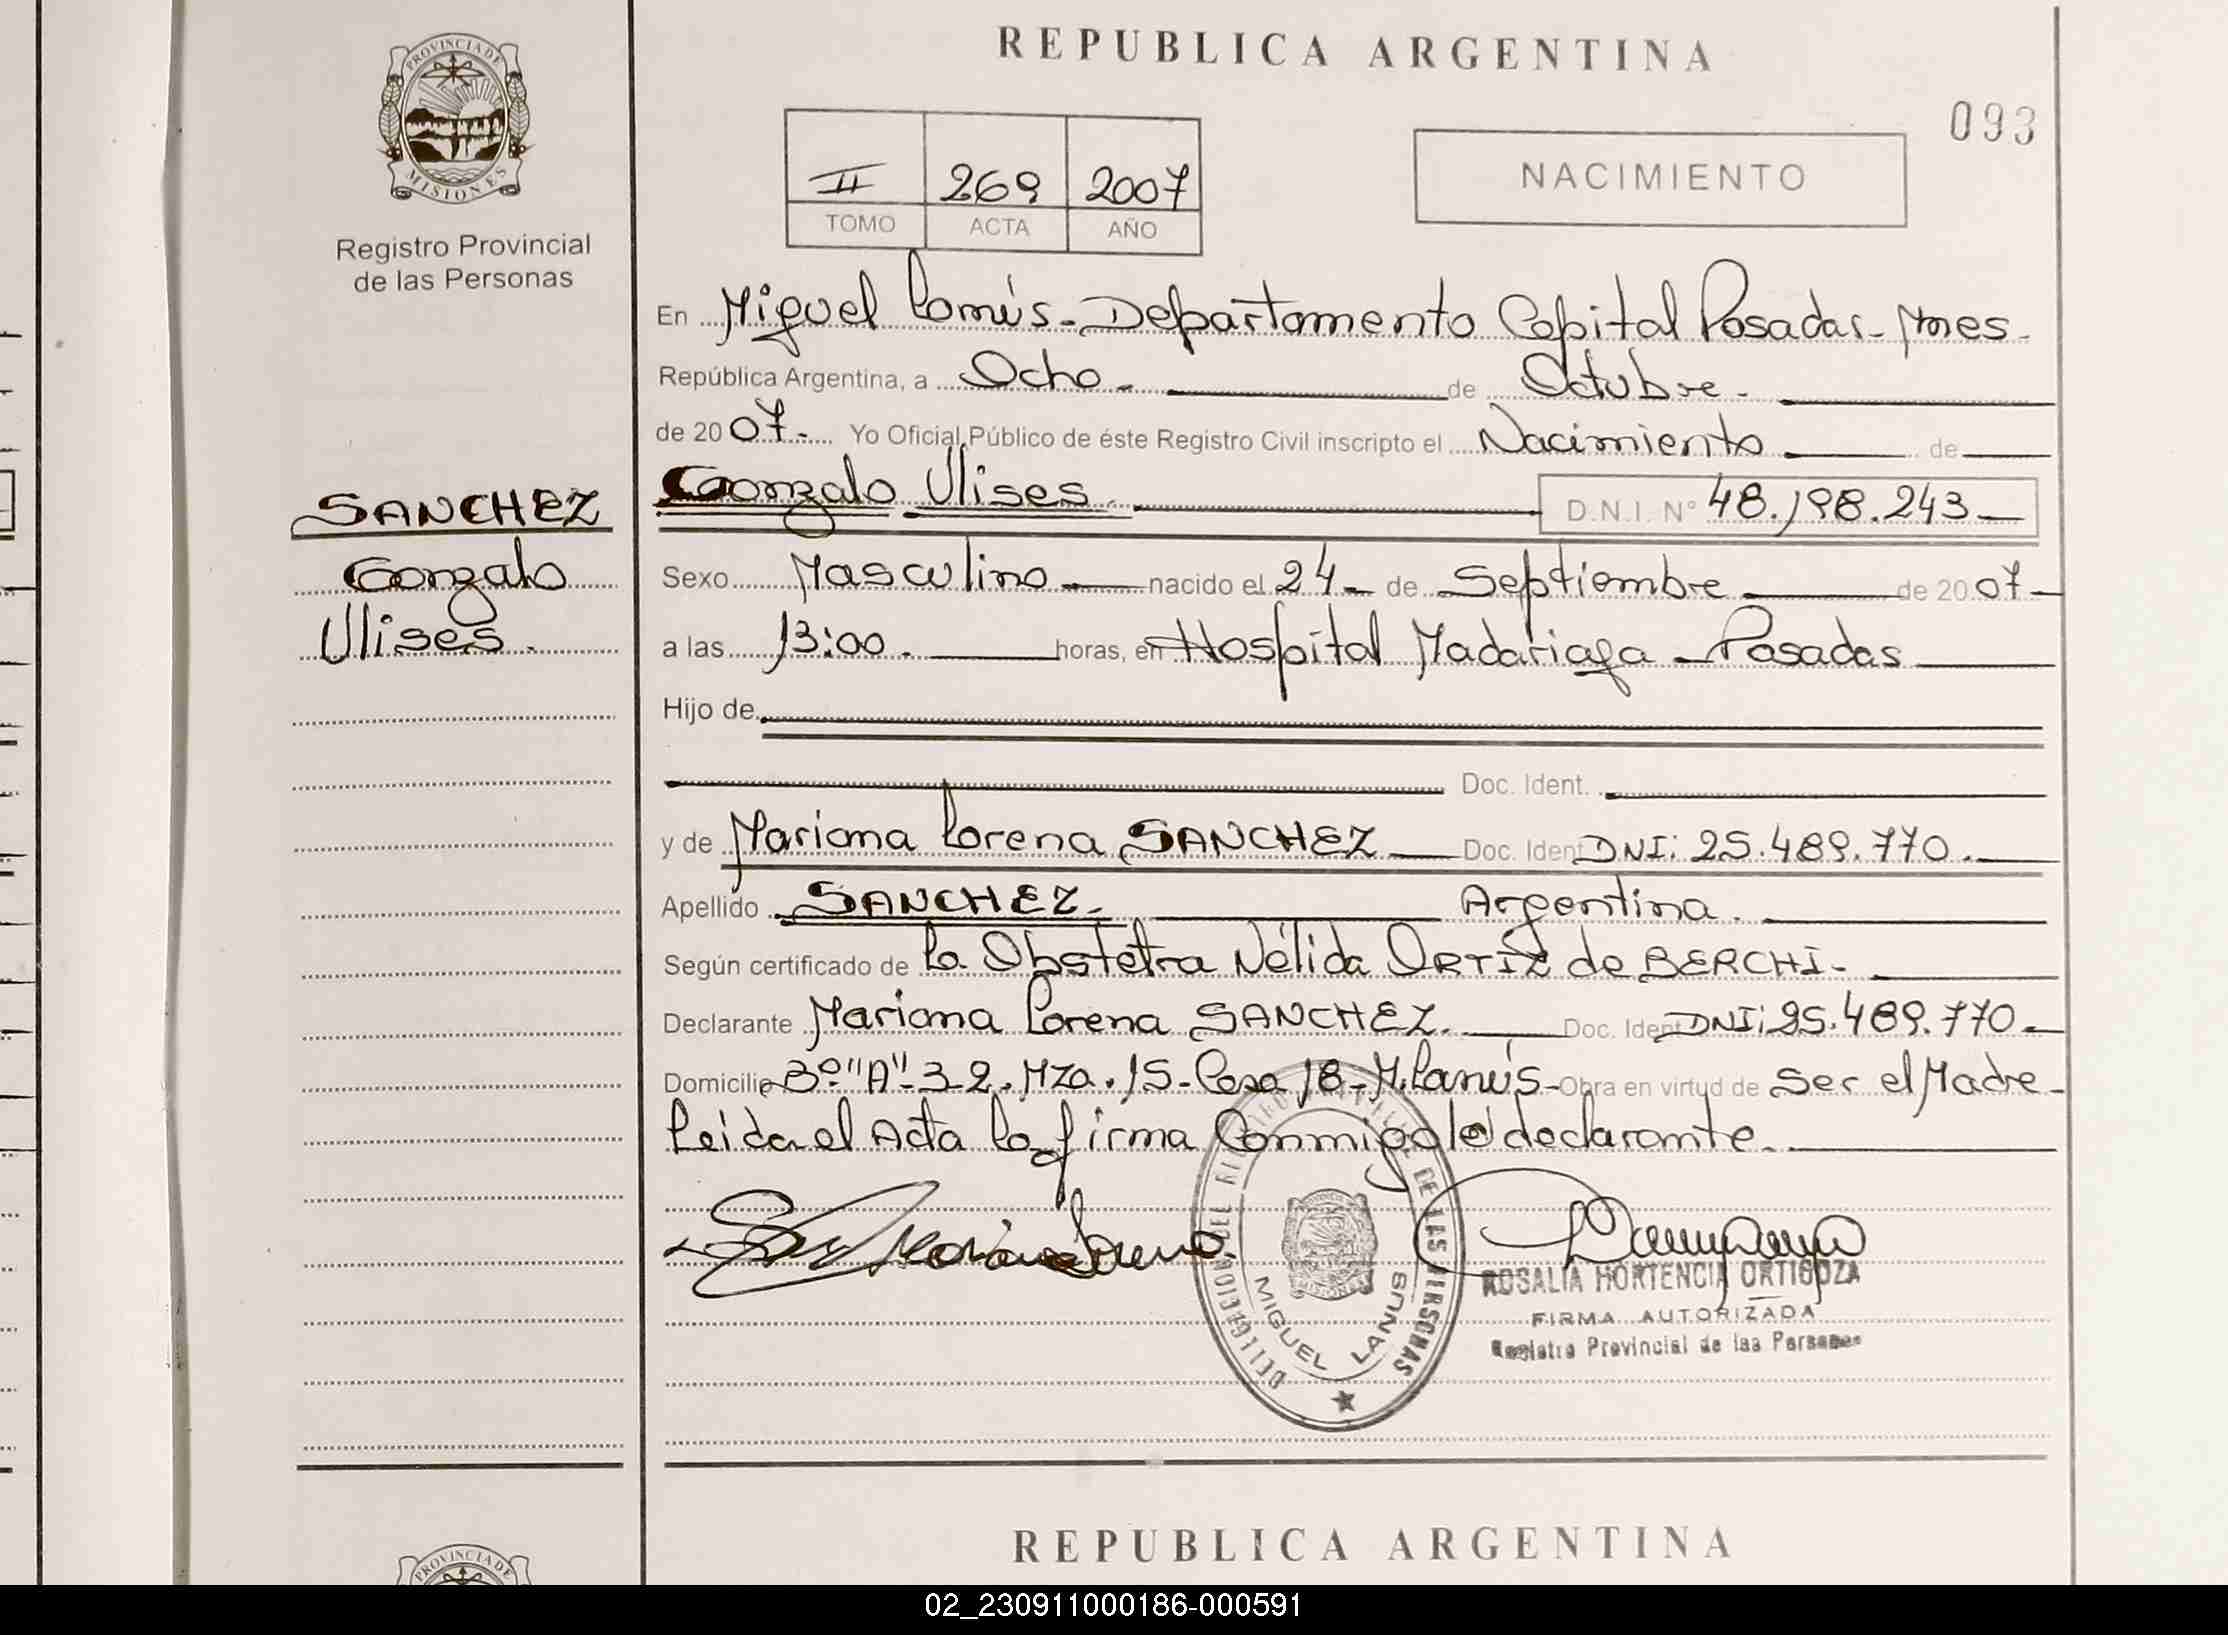 REPUBLICA ARGENTINA
093
PROVINCIA DE
MISIONES
Registro Provincial
de las Personas
II 269 2007
TOMO ACTA AÑO
NACIMIENTO
En Miguel Lanús - Departamento Capital Posadas - Mnes -
República Argentina, a Ocho - de Octubre -
de 2007 - Yo Oficial Público de éste Registro Civil inscripto el Nacimiento de
SANCHEZ
Gonzalo
Ulises -
Gonzalo Ulises - D.N.I. N° 48.198.243
Sexo Masculino nacido el 24 - de Septiembre de 2007 -
a las 13:00 . horas, en Hospital Madariaga - Posadas
Hijo de
Doc. Ident.
y de Mariana Lorena SANCHEZ Doc. Ident DNI: 25.489.770 .
Apellido SANCHEZ - Argentina .
Según certificado de la Obstetra Nélida ORTIZ de BERCHI -
Declarante Mariana Lorena SANCHEZ. Doc. Ident DNI: 25.489.770 -
Domicilio B° "A" - 3 2 . Mza . 15 - Casa 18 - M. Lanús - Obra en virtud de ser el Madre -
Leída el Acta la firma Conmigo la declarante .
DEL REGISTRO DE LAS PERSONAS
MIGUEL LANUS
ROSALIA HORTENCIA ORTIGOZA
FIRMA AUTORIZADA
Registro Provincial de las Personas
REPUBLICA ARGENTINA
PROVINCIA DE
02_230911000186-000591